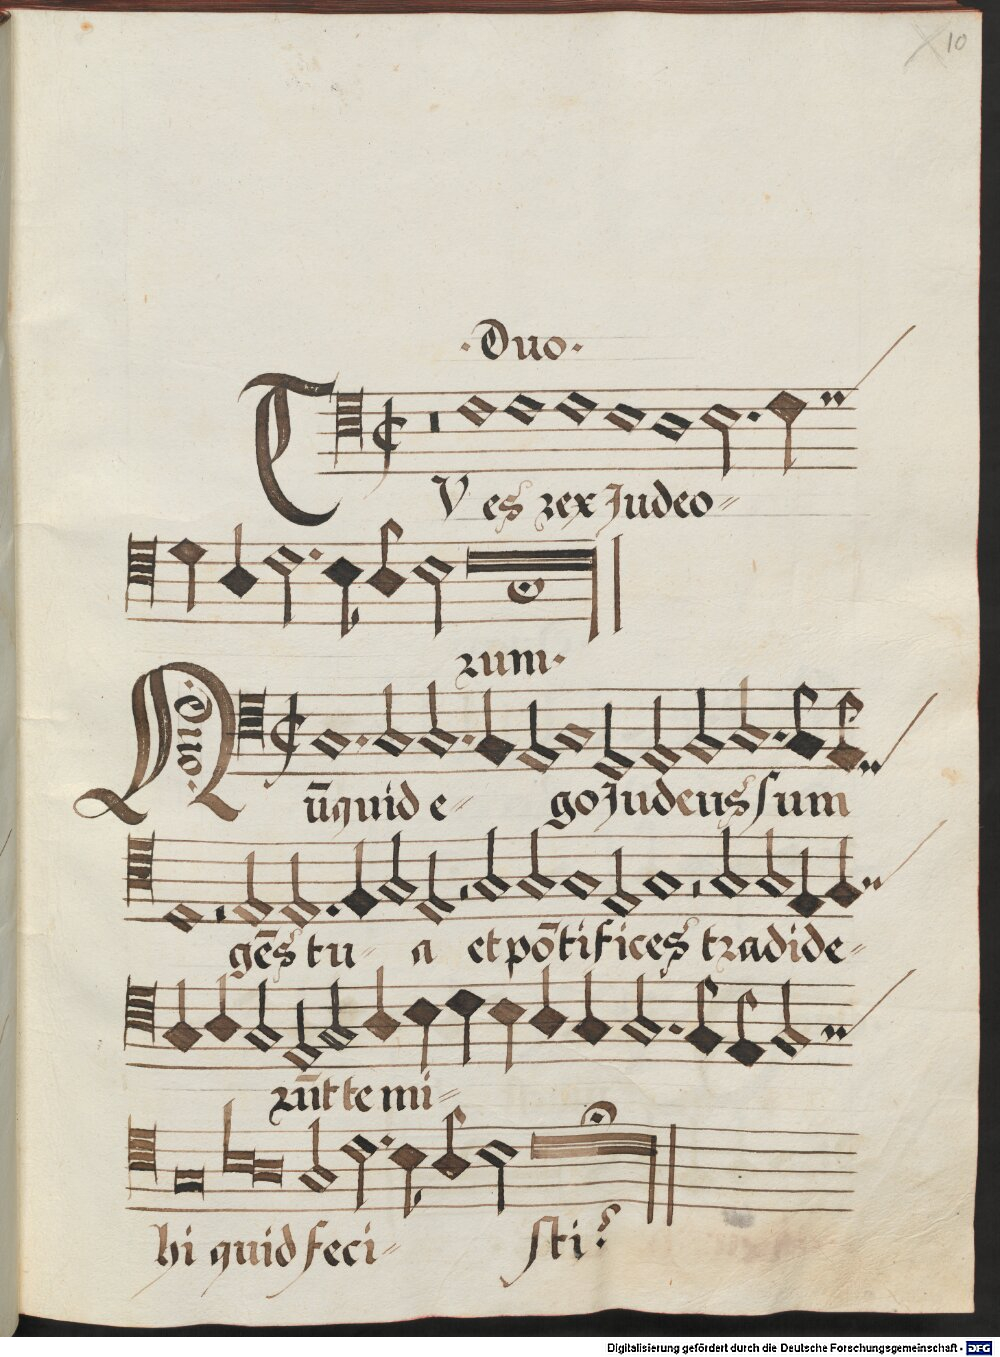 10
·Duo·
TV es rex Judeo-
rum·
·Duo·
Nūquid e- go Judeus sum
gēs tu- a et pōtifices tradide-
rūt te mi-
hi quid feci- sti?
Digitalisierung gefördert durch die Deutsche Forschungsgemeinschaft - DFG